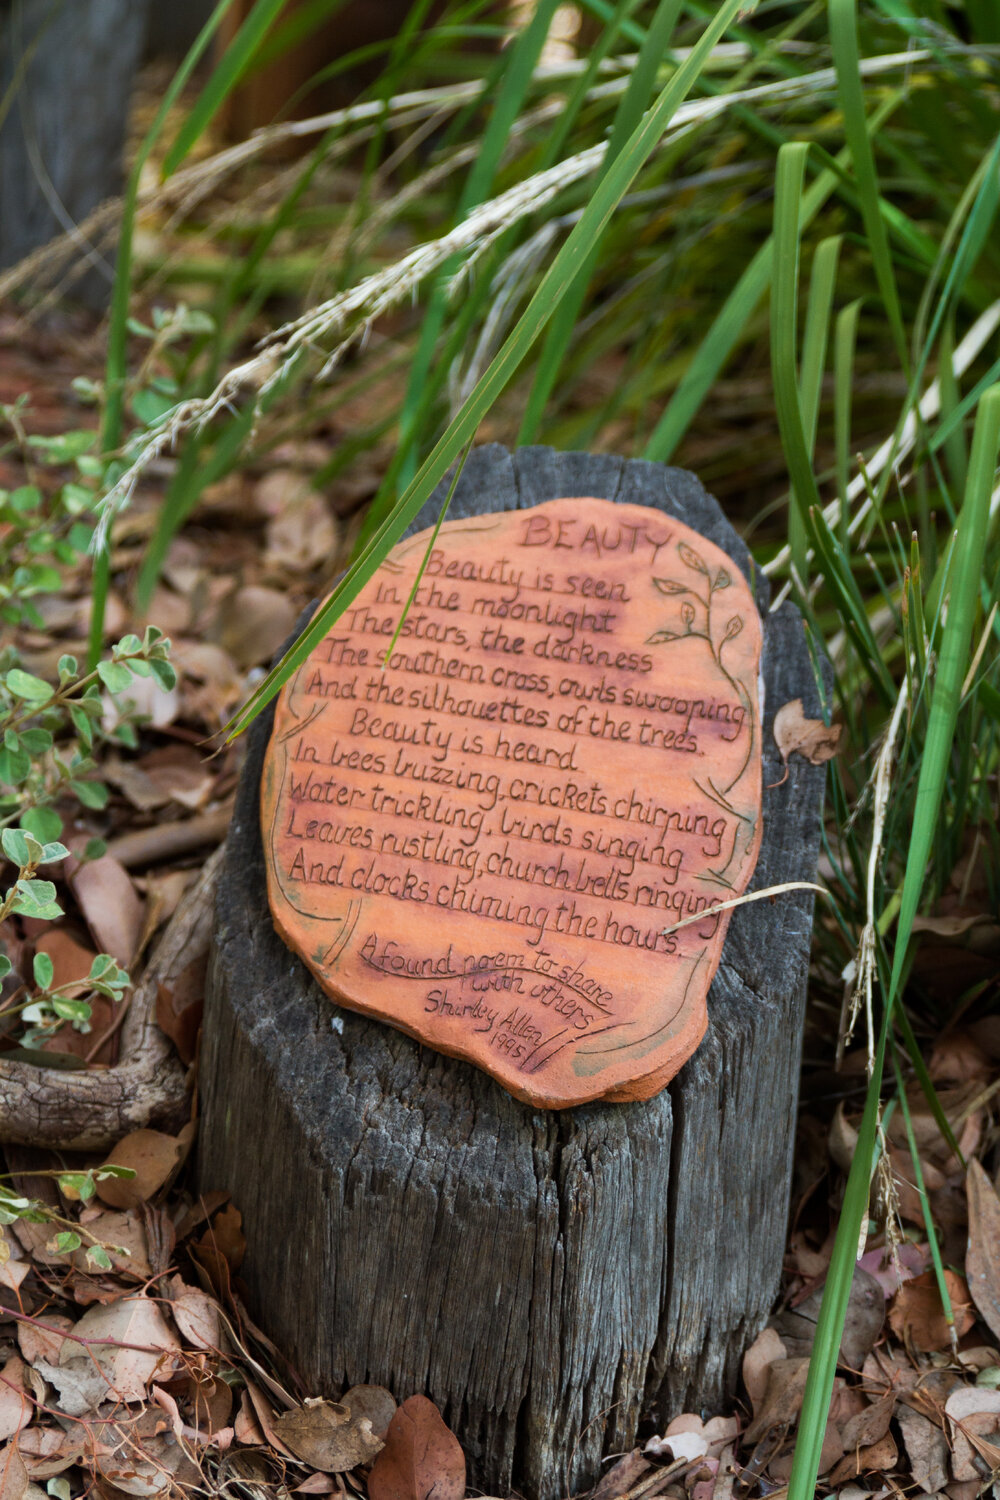 BEAUTY
Beauty is seen
In the moonlight
The stars, the darkness
The southern cross, owls swooping
And the silhouettes of the trees.
Beauty is heard
In bees buzzing, crickets chirping
Water trickling, birds singing
Leaves rustling, church bells ringing
And clocks chiming the hours.
A found poem to share
with others
Shirley Allen
1995